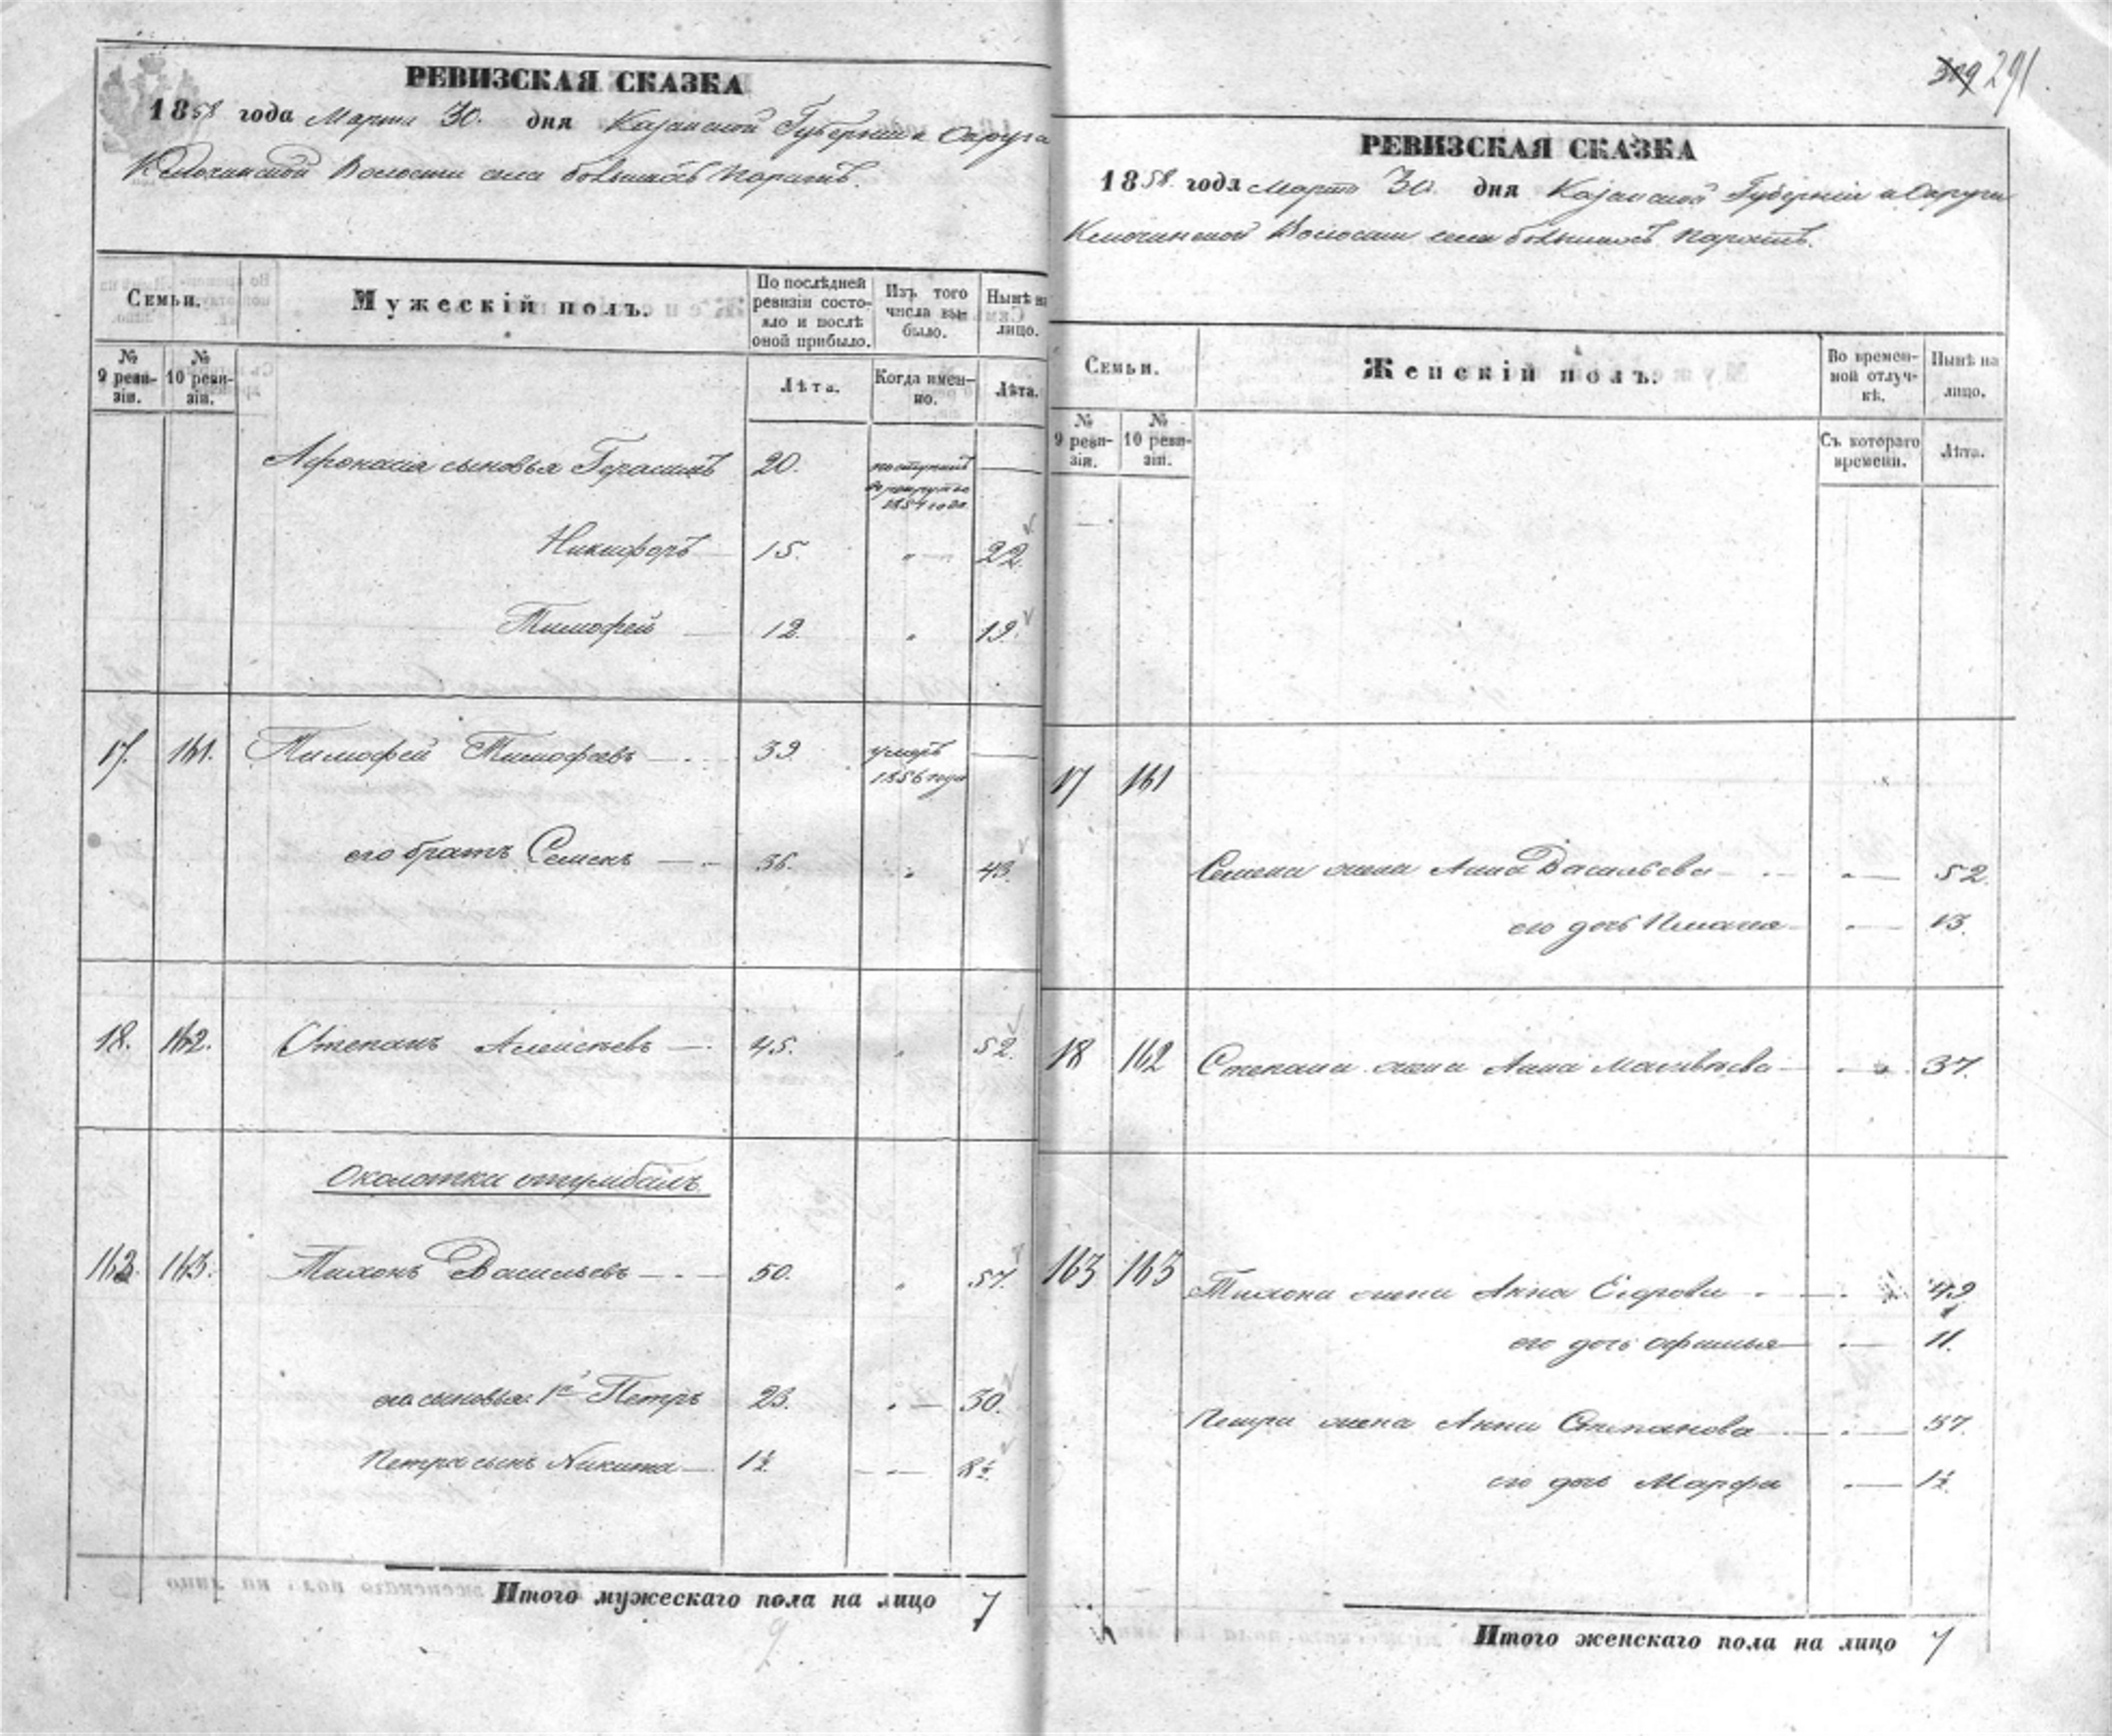 309 291
РЕВИЗСКАЯ СКАЗКА
1858 года Марта 30. дня Казанской Губернии и Округа
Ключинской Волости села большихъ Паратъ.
Семьи.
Мужескій полъ.
По послѣдней ревизіи состояло и послѣ оной прибыло.
Изъ того числа выбыло.
Нынѣ на лицо.
№ 9 ревизіи.
№ 10 ревизіи.
Лѣта.
Когда именно.
Лѣта.
Афонасія сыновья Герасимъ 20. поступилъ —
в рекруты
1854 года
Никифоръ — 15. " — 22.
Тимофей — 12. " 19.
17. 161. Тимофей Тимофеевъ — 39 умеръ —
1856 года
его братъ Семенъ — 36. " 43.
18. 162. Степанъ Алексѣевъ — 45. " 52.
Околотка
163. 163. Тихонъ Васильевъ — 50. " 57.
его сыновья: 1й Петръ 23. " — 30.
Петра сынъ Никита — 1½ — " — 8½
Итого мужескаго пола на лицо 7
9
РЕВИЗСКАЯ СКАЗКА
1858. года Марта 30. дня Казанской Губерніи и Округи
Ключинской Волости села большихъ Паратъ.
Семьи.
Женскій полъ.
Во временной отлучкѣ.
Нынѣ на лицо.
№ 9 ревизіи.
№ 10 ревизіи.
Съ котораго времени.
Лѣта.
17 161
Семена жена Анна Васильева — " — 52.
его дочь — " — 13.
18 162 Степана жена Анна Матвѣева — " — 37.
163 163 Тихона жена Анна — 49
его дочь Офимья — " — 11.
Петра жена Анна Степанова — " — 37.
его дочь Марфа " — 1½
Итого женскаго пола на лицо 7